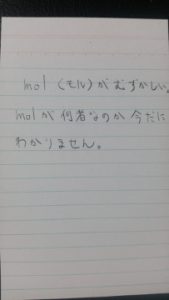 mol (モル)がむずかしい。
molが何者なのか今だに
わかりません。